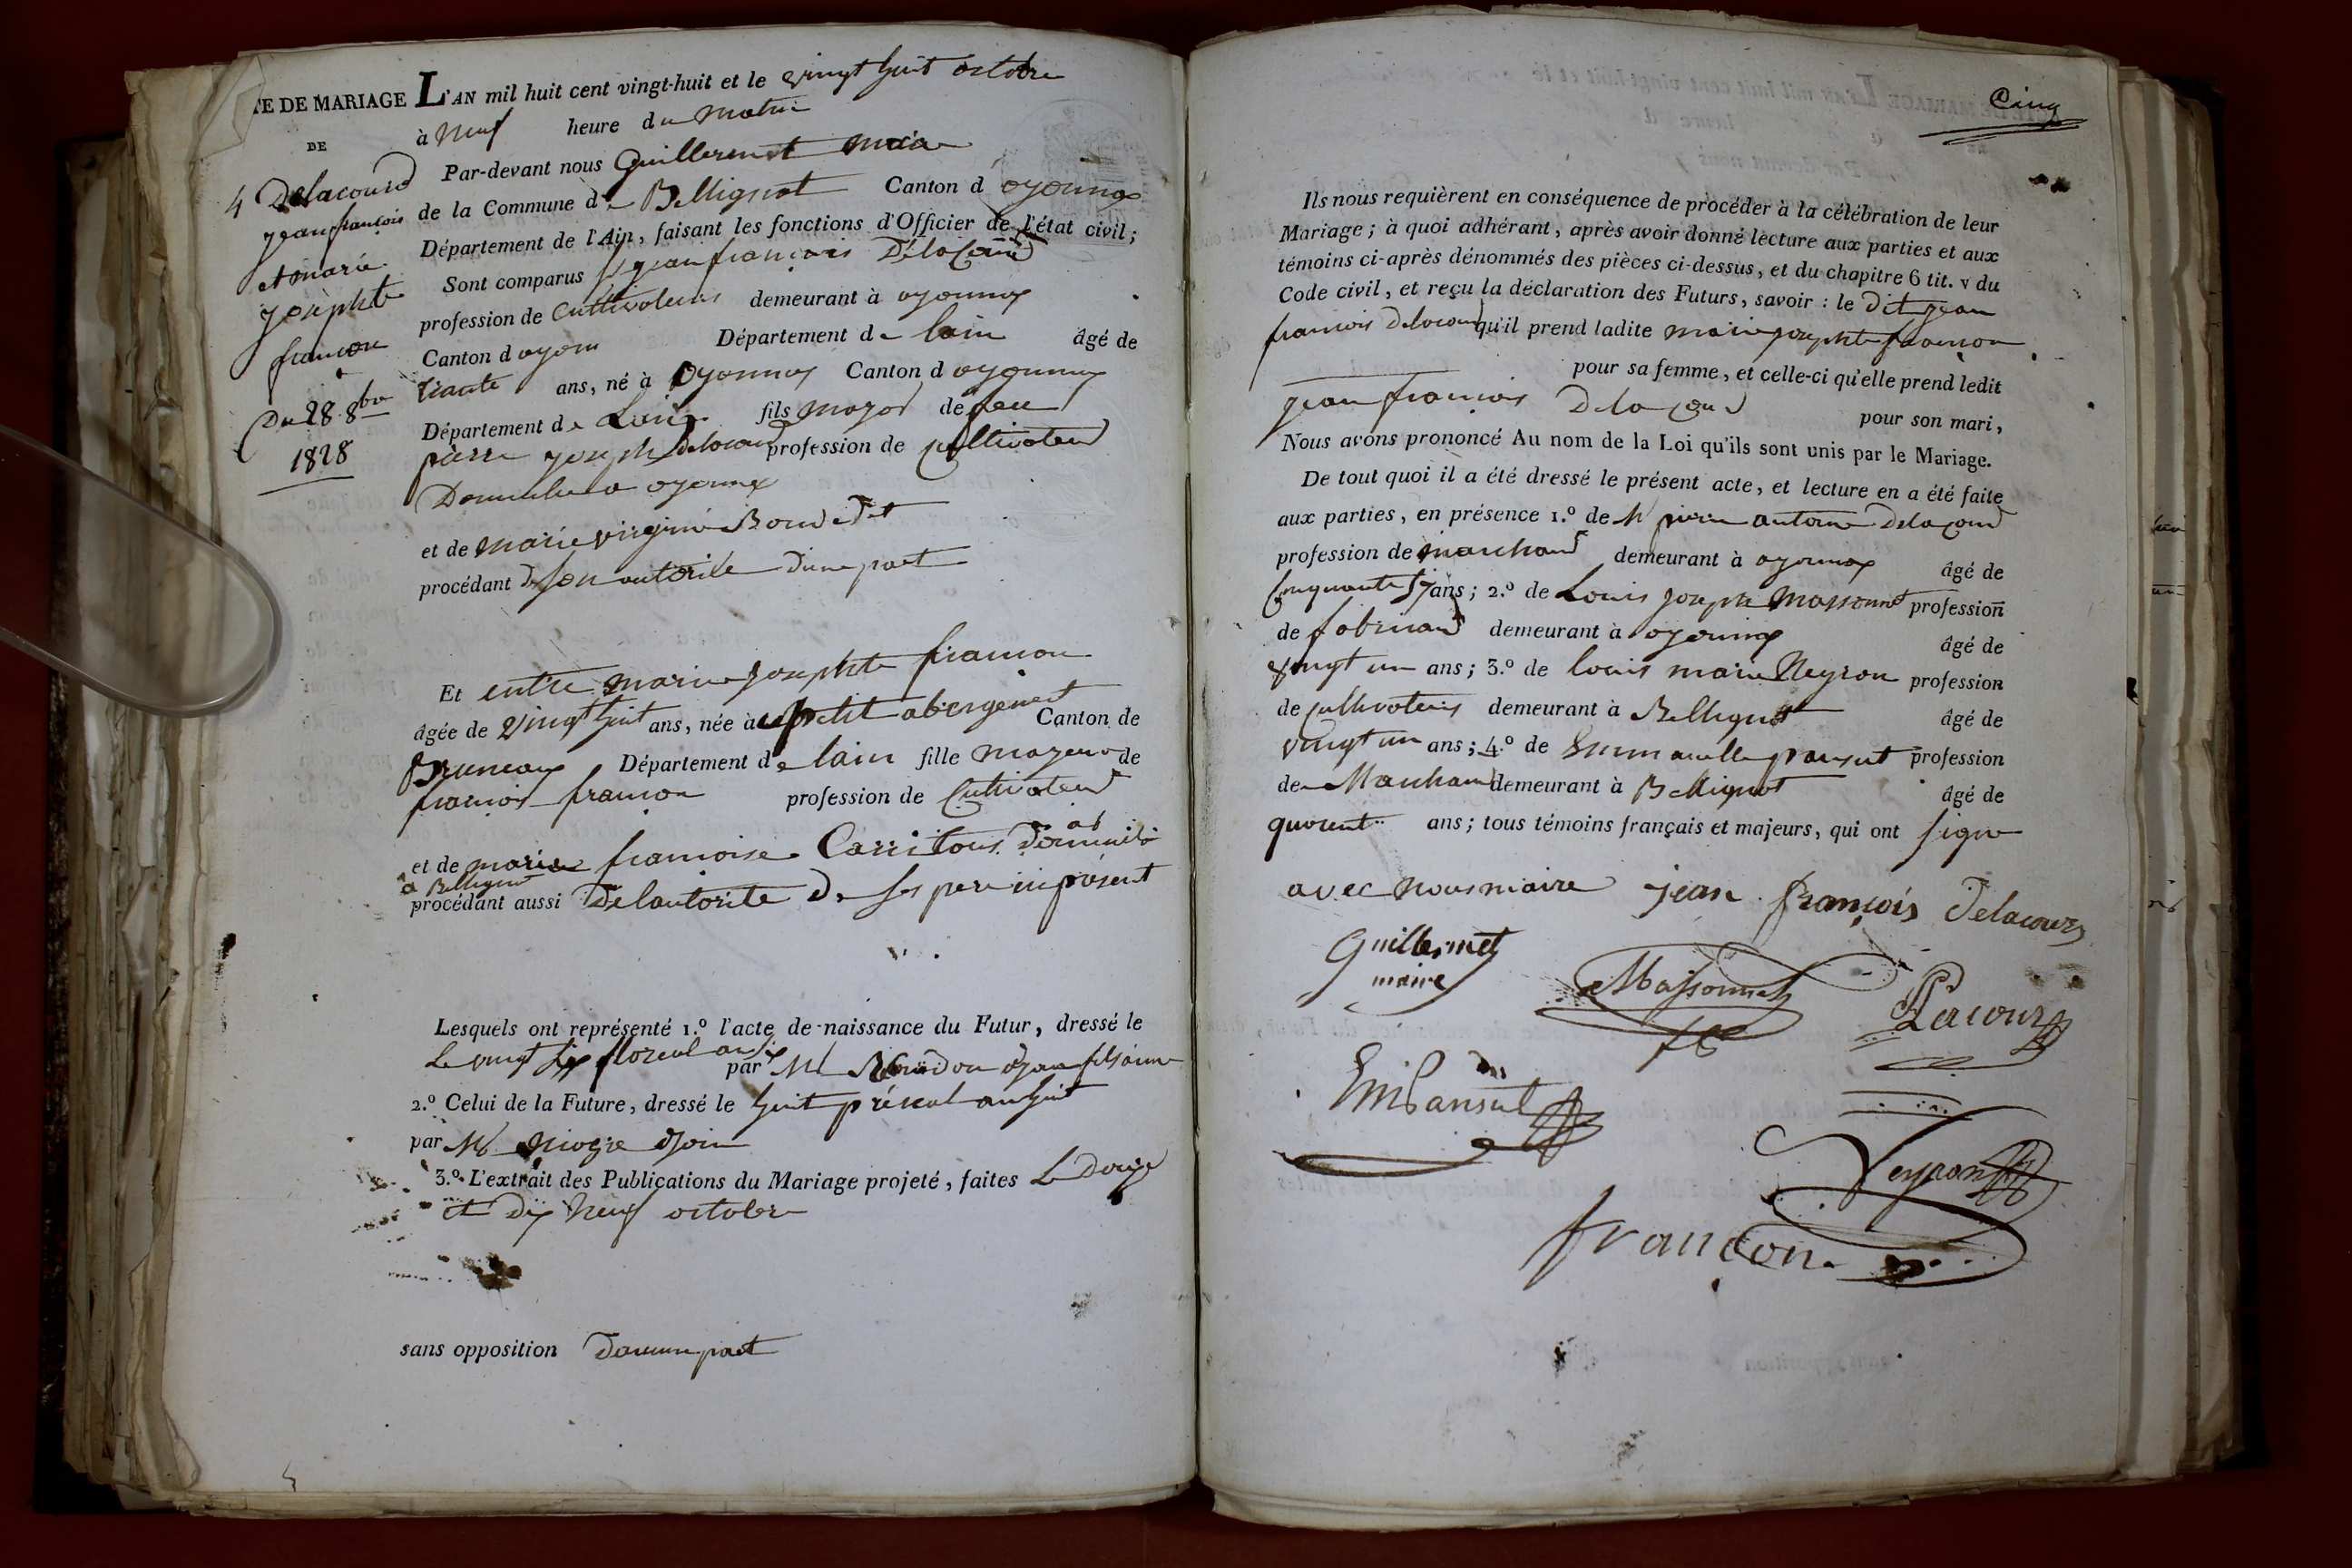 TE DE MARIAGE
DE
4 Delacourd
jean françois
et marie
josephte
françon
Du 28 8bre
1828
L'AN mil huit cent vingt-huit et le vingt huit octobre
à neuf heure du matin
Par-devant nous Guillermet maire
de la Commune de Bellignat Canton d oyonnax
Département de l'Ain, faisant les fonctions d'Officier de l'état civil;
Sont comparus jean françois Delacourd
profession de Cultivateur demeurant à oyonnax
Canton d oyon Département de lain âgé de
trante ans, né à Oyonnax Canton d oyonnax
Département de Lain fils major de feu
pierre joseph delacourd profession de cultivateur
Domicilie a oyonnax
et de marie virginie Bondet
procédant de son autorité d'une part
Et entre marie josephte francon
âgée de vingt huit ans, née à petit abergement Canton de
Brenoux Département de lain fille mageure de
francois francon profession de Cultivateur
et de marie francoise Carritoux domicilié
a Bellignat
procédant aussi de lautorite de ses pere ici présent
Lesquels ont représenté 1.º l'acte de naissance du Futur, dressé le
Le vingt six floreal an six par Mr
2.º Celui de la Future, dressé le huit prérial an huit
par Mr niogre
3.º L'extrait des Publications du Mariage projeté, faites Le douze
et dix neuf octobre
sans opposition d'aucune part
Cinq
Ils nous requièrent en conséquence de procéder à la célébration de leur
Mariage; à quoi adhérant, après avoir donné lecture aux parties et aux
témoins ci-après dénommés des pièces ci-dessus, et du chapitre 6 tit. v du
Code civil, et reçu la déclaration des Futurs, savoir: le Dit jean
francois delacourd qu'il prend ladite marie josephte francon
pour sa femme, et celle-ci qu'elle prend ledit
jean francois Delacourd pour son mari,
Nous avons prononcé Au nom de la Loi qu'ils sont unis par le Mariage.
De tout quoi il a été dressé le présent acte, et lecture en a été faite
aux parties, en présence 1.º de Mr pierre antoine Delacourd
profession de marchand demeurant à oyonnax âgé de
Cinquante ans; 2.º de Louis joseph Massonnet profession
de fabricand demeurant à oyonnax âgé de
vingt un ans; 3.º de louis marie Neyron profession
de cultivateur demeurant à Bellignat âgé de
vingt un ans; 4.º de Emmanuelle pansut profession
de Marchand demeurant à Bellignat âgé de
quarent ans; tous témoins français et majeurs, qui ont signe
avec nous maire jean françois Delacour
Guillermet
maire
Massonnet
Lacour
Em Pansut
Neyron
françon